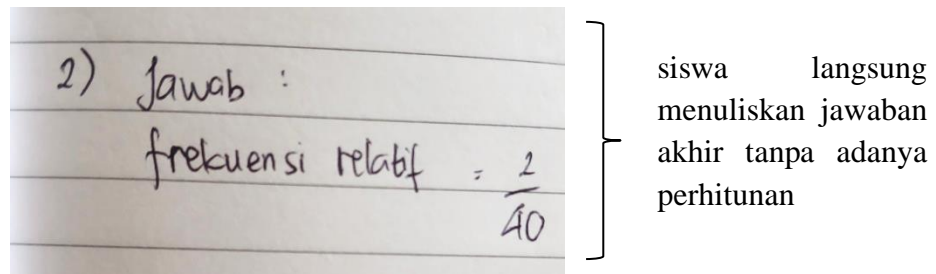 2) Jawab :
frekuensi relatif = 2/40
siswa langsung
menuliskan jawaban
akhir tanpa adanya
perhitunan